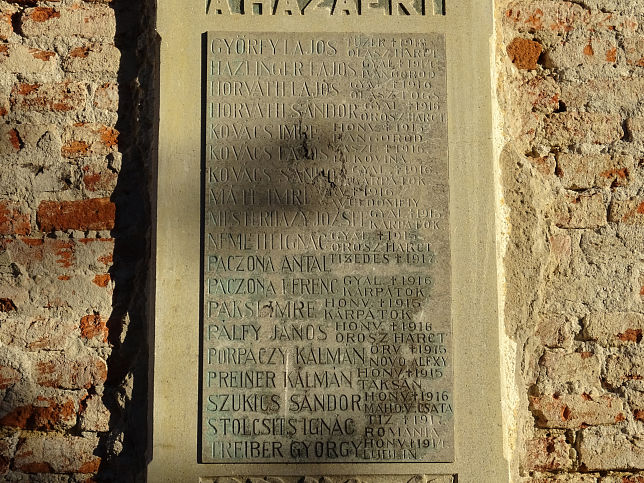 A HAZÁÉRT
GYŐRFY LAJOS TÜZÉR † 1918 OLASZ HARCT
HAZLINGER LAJOS GYAL † 1915
HORVÁTH LAJOS GYAL † 1916
HORVÁTH SÁNDOR GYAL † 1915 OROSZ HARCT
KOVÁCS IMRE HONV † 1915
KOVÁCS
KOVÁCS SÁNDOR GYAL † 1915 KÁRPÁTOK
MÁTÉ IMRE
MESTERHÁZY JÓZSEF GYAL † 1915 OROSZ HARCT
NÉMETH IGNÁC GYAL † 1916 OROSZ HARCT
PACZONA ANTAL TIZEDES † 1917
PACZONA FERENC GYAL † 1916 KÁRPÁTOK
PAKSI IMRE HONV † 1915 KÁRPÁTOK
PÁLFY JÁNOS HONV † 1916 OROSZ HARCT
PORPÁCZY KÁLMÁN ŐRV † 1915 NOVO ALEXY
PREINER KÁLMÁN HONV † 1915 TAKSÁN
SZUKICS SÁNDOR HONV † 1916 MAHOV. CSATA
STOLCSITS IGNÁC TIZ † 1917 ROMÁN
TREIBER GYÖRGY HONV † 1914 LUBLIN